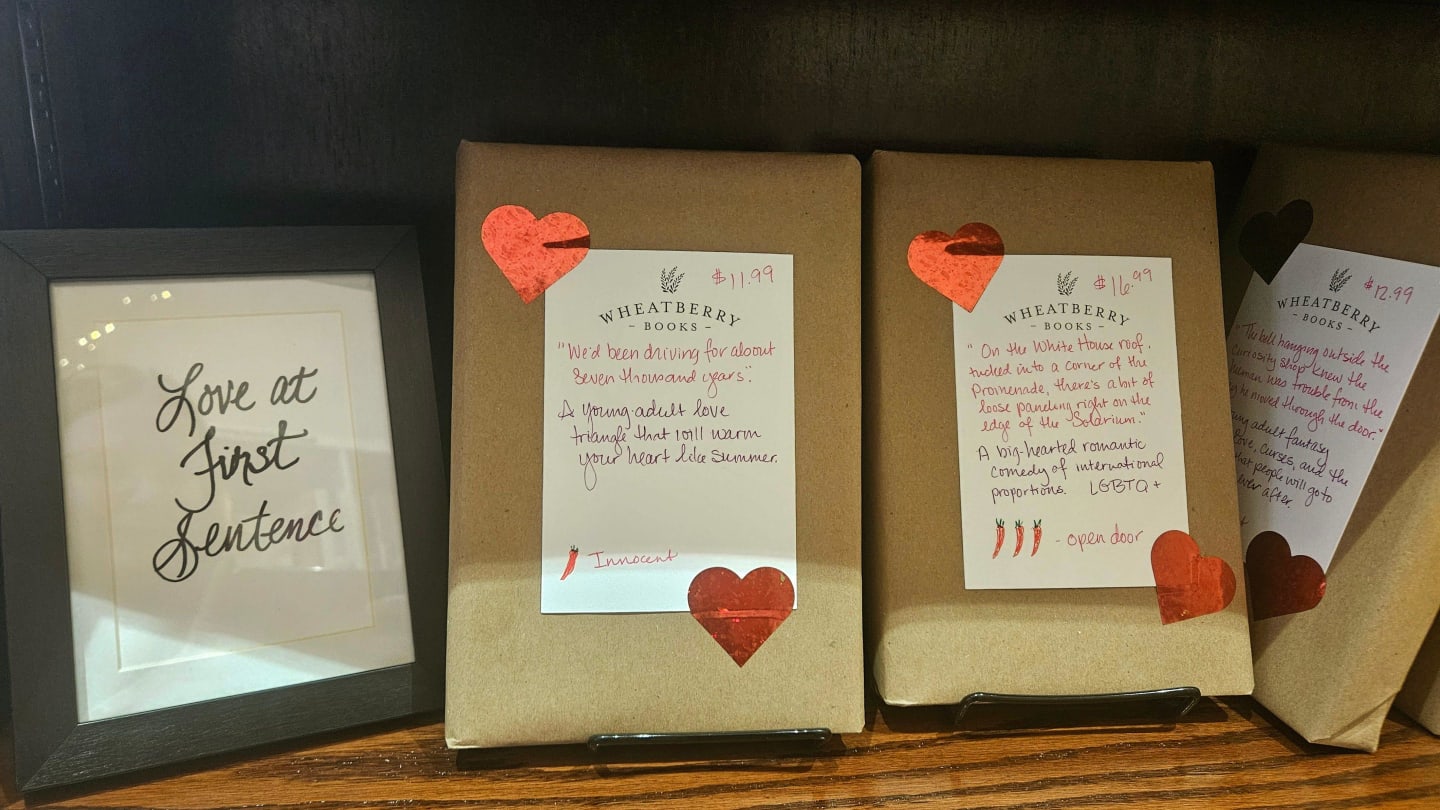 Love at
First
Sentence
$11.99
WHEATBERRY
- BOOKS -
"We'd been driving for about
seven thousand years".
A young-adult love
triangle that will warm
your heart like summer.
Innocent
$16.99
WHEATBERRY
- BOOKS -
"On the White House roof,
tucked into a corner of the
Promenade, there's a bit of
loose paneling right on the
edge of the Solarium."
A big-hearted romantic
comedy of international
proportions. LGBTQ+
- open door
$12.99
WHEATBERRY
- BOOKS -
"The bell hanging outside the
curiosity shop knew the
human was trouble from the
he moved through the door."
adult fantasy
love, curses, and the
that people will go to
ever after.